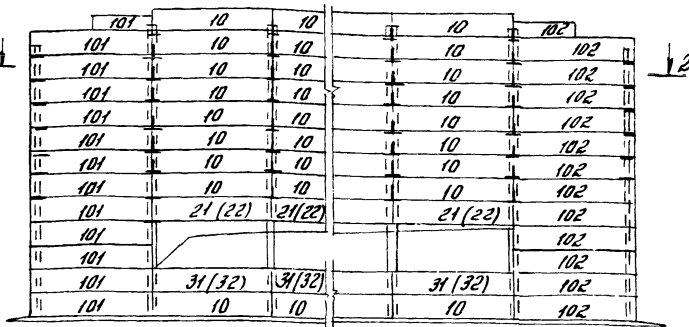 101 10 10 10 102
101 10 10 10 102
101 10 10 10 102 2
101 10 10 10 102
101 10 10 10 102
101 10 10 10 102
101 10 10 10 102
101 10 10 10 102
101 21(22) 21(22) 21(22) 102
101 102
101 102
101 31(32) 31(32) 31(32) 102
101 10 10 10 102